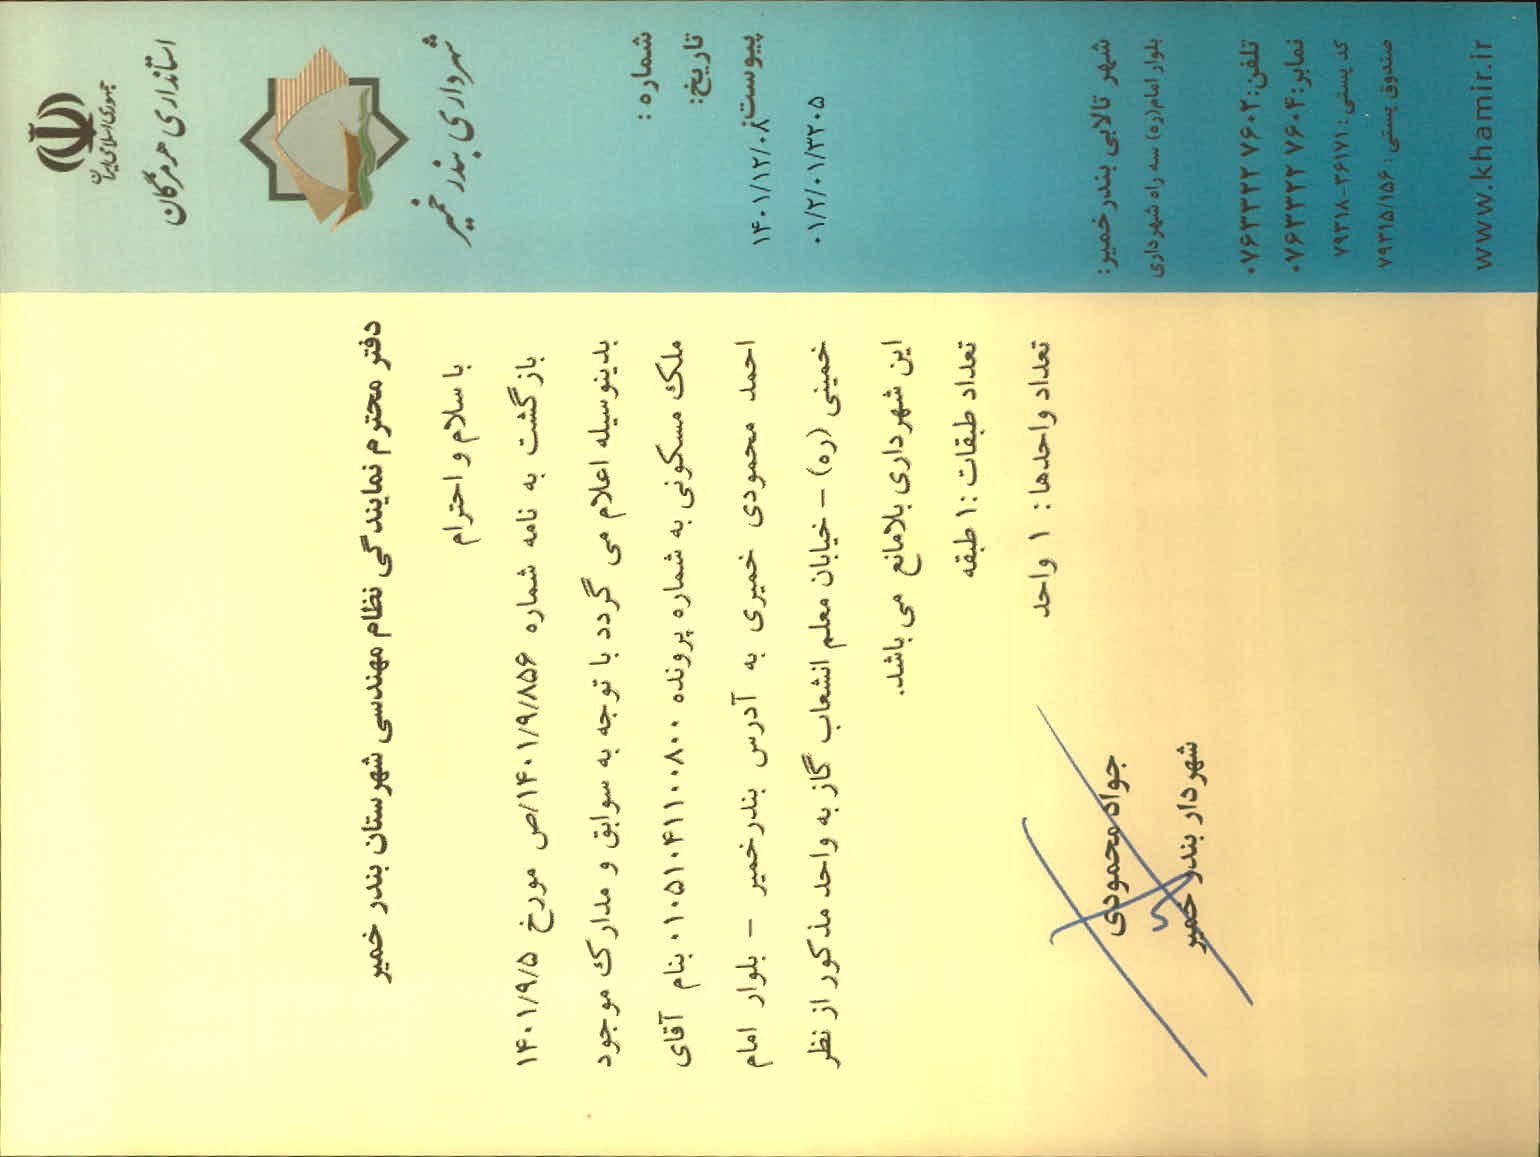 جمهوری اسلامی ایران
استانداری هرمزگان
شهرداری بندر خمیر
شماره :
تاریخ:
پیوست:
۱۴۰۱/۱۲/۰۸
۰۱/۲/۰۱/۳۲۰۵
دفتر محترم نمایندگی نظام مهندسی شهرستان بندر خمیر
با سلام و احترام
بازگشت به نامه شماره ۱۴۰۱/۹/۸۵۶/ص مورخ ۱۴۰۱/۹/۵
بدینوسیله اعلام می گردد با توجه به سوابق و مدارک موجود
ملک مسکونی به شماره پرونده ۰۱۰۵۱۰۴۱۱۰۰۸۰۰ بنام آقای
احمد محمودی خمیری به آدرس بندرخمیر – بلوار امام
خمینی (ره) – خیابان معلم انشعاب گاز به واحد مذکور از نظر
این شهرداری بلامانع می باشد.
تعداد طبقات :۱ طبقه
تعداد واحدها : ۱ واحد
جواد محمودی
شهردار بندر خمیر
شهر تالابی بندرخمیر:
بلوار امام(ره) سه راه شهرداری
تلفن: ۰۷۶۳۳۲۲۷۶۰۲
نمابر: ۰۷۶۳۳۲۲۷۶۰۴
کد پستی : ۳۶۱۷۱-۷۹۳۱۸
صندوق پستی : ۷۹۳۱۵/۱۵۶
www.khamir.ir